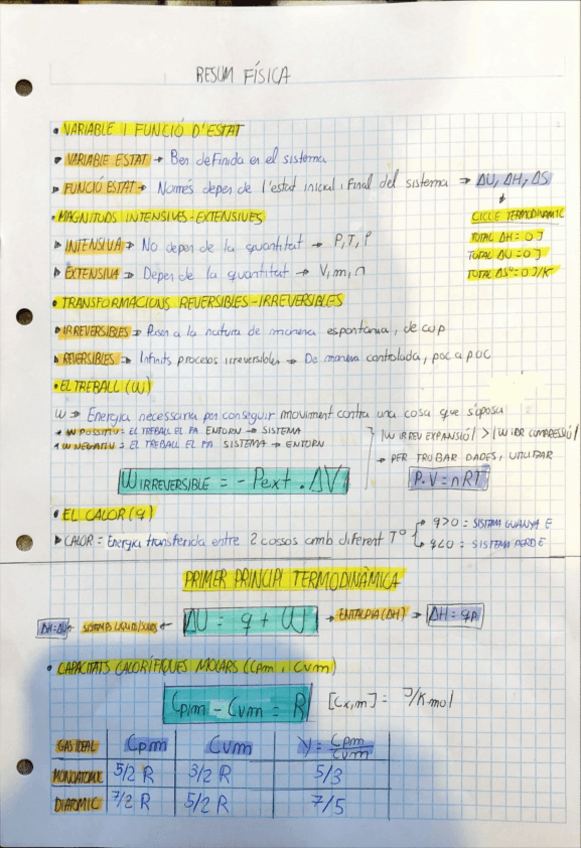 RESUM FÍSICA
• VARIABLE I FUNCIÓ D'ESTAT
▸ VARIABLE ESTAT → Ben definida en el sistema
▸ FUNCIÓ ESTAT → Només depen de l'estat inicial i final del sistema → ΔU, ΔH, ΔS
• MAGNITUDS INTENSIVES-EXTENSIVES
CICLE TERMODINÀMIC
▸ INTENSIVA → No depen de la quantitat → P, T, ρ
TOTAL ΔH = 0 J
TOTAL ΔU = 0 J
▸ EXTENSIVA → Depen de la quantitat → V, m, n
TOTAL ΔS = 0 J/K
• TRANSFORMACIONS REVERSIBLES-IRREVERSIBLES
▸ IRREVERSIBLES → Pasen a la natura de manera espontània, de cop
▸ REVERSIBLES → Infinits procesos irreversibles → De manera controlada, poc a poc
• EL TREBALL (W)
W → Energia necessaria per conseguir moviment contra una cosa que s'oposa
• W POSSITIU: EL TREBALL EL FA ENTORN → SISTEMA
• W NEGATIU: EL TREBALL EL FA SISTEMA → ENTORN
|W IRREV EXPANSIÓ| > |W IRR COMPRESSIÓ|
→ PER TROBAR DADES, UTILITZAR
W IRREVERSIBLE = - Pext . ΔV
P.V = nRT
• EL CALOR (q)
▸ CALOR = Energia transferida entre 2 cossos amb diferent Tº
q>0 : SISTEMA GUANYA E
q<0 : SISTEMA PERD E
PRIMER PRINCIPI TERMODINÀMICA
ΔH=ΔU ← SISTEMES LÍQUIDS/SOLIDS ← ΔU = q + W → ENTALPIA (ΔH) → ΔH = qp
• CAPACITATS CALORÍFIQUES MOLARS (Cpm i Cvm)
Cp,m - Cvm = R [Cx,m] = J/K·mol
GAS IDEAL Cpm Cvm γ = Cpm/Cvm
MONOATOMIC 5/2 R 3/2 R 5/3
DIATOMIC 7/2 R 5/2 R 7/5